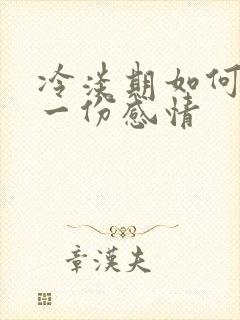 冷淡期如何
一份感情
章漢夫